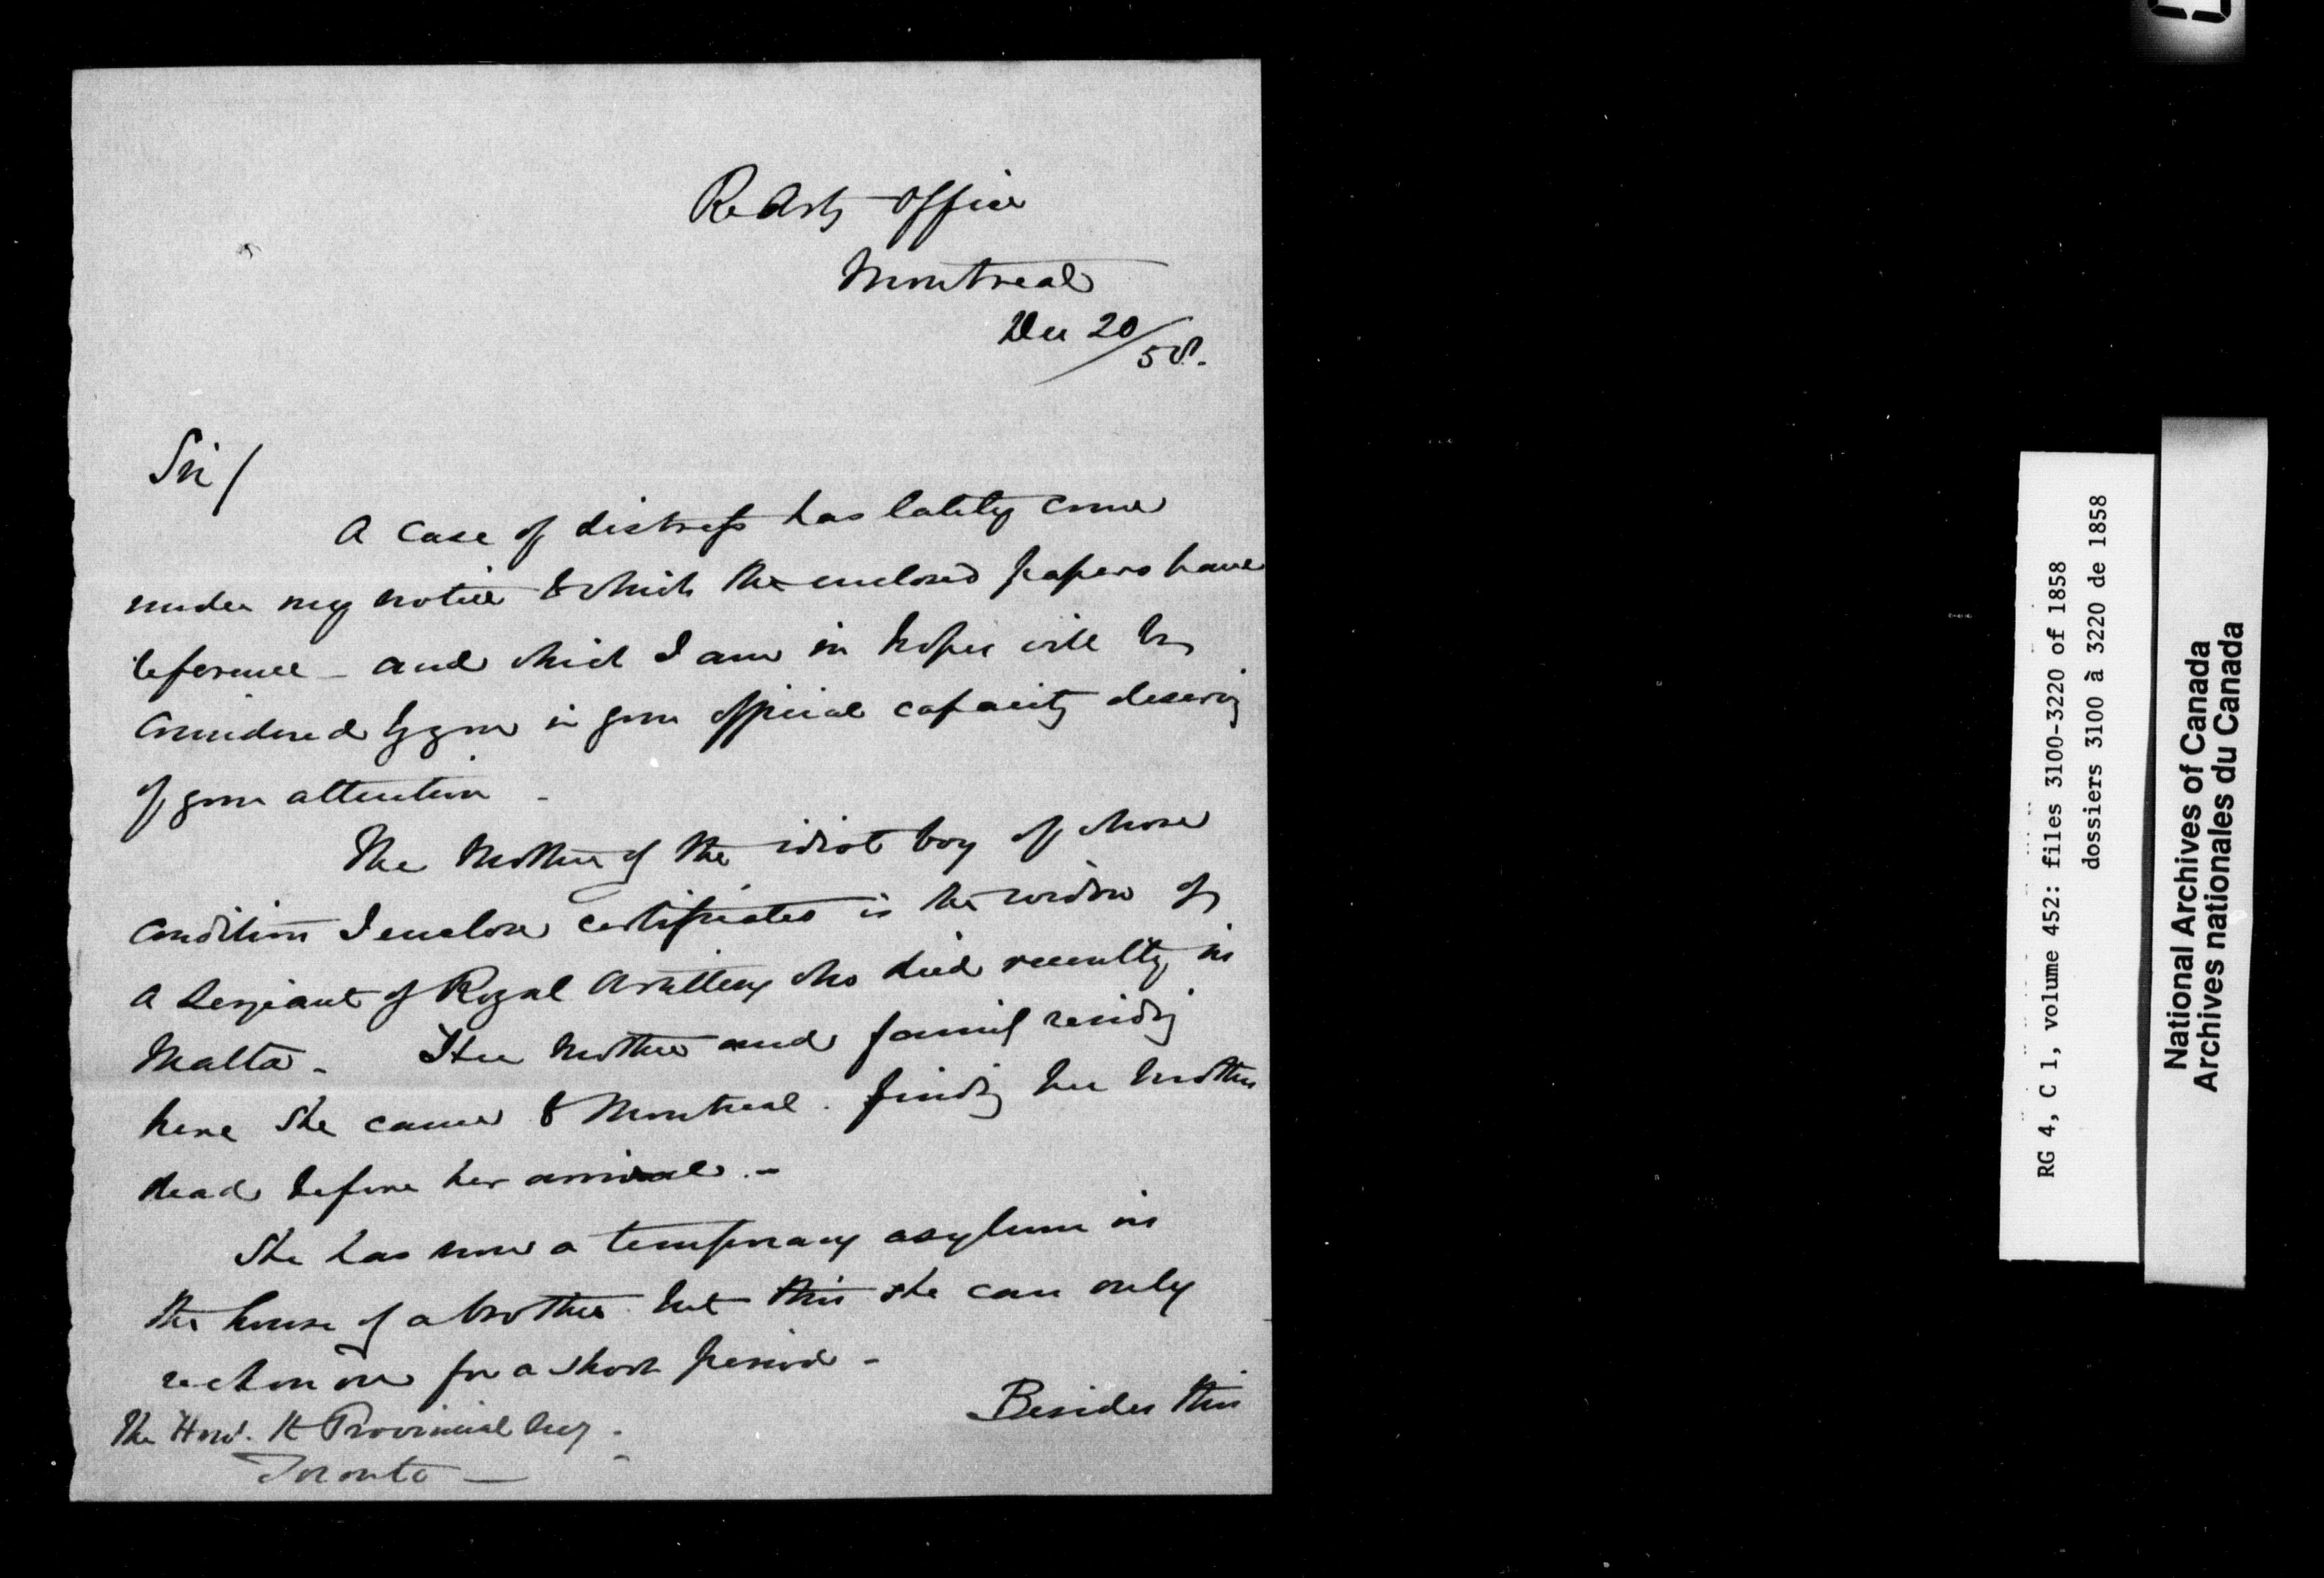 Rl Arty Office
Montreal
Dec 20/58.
Sir/
A case of distress has lately come
under my notice to which the enclosed papers have
reference - and which I am in hopes will be
considered by you in your official capacity deserving
of your attention -
The Mother of the idiot boy of whose
condition I enclose certificates is the widow of
a Sergeant of Royal Artillery who died recently in
Malta - Her mother and family residing
here she came to Montreal. finding her mother
dead before her arrival. -
She has now a temporary asylum in
the house of a brother but this she can only
reckon on for a short period -
Besides this
The Hon. the Provincial Secy.
Toronto -
RG 4, C 1, volume 452: files 3100-3220 of 1858
dossiers 3100 à 3220 de 1858
National Archives of Canada
Archives nationales du Canada